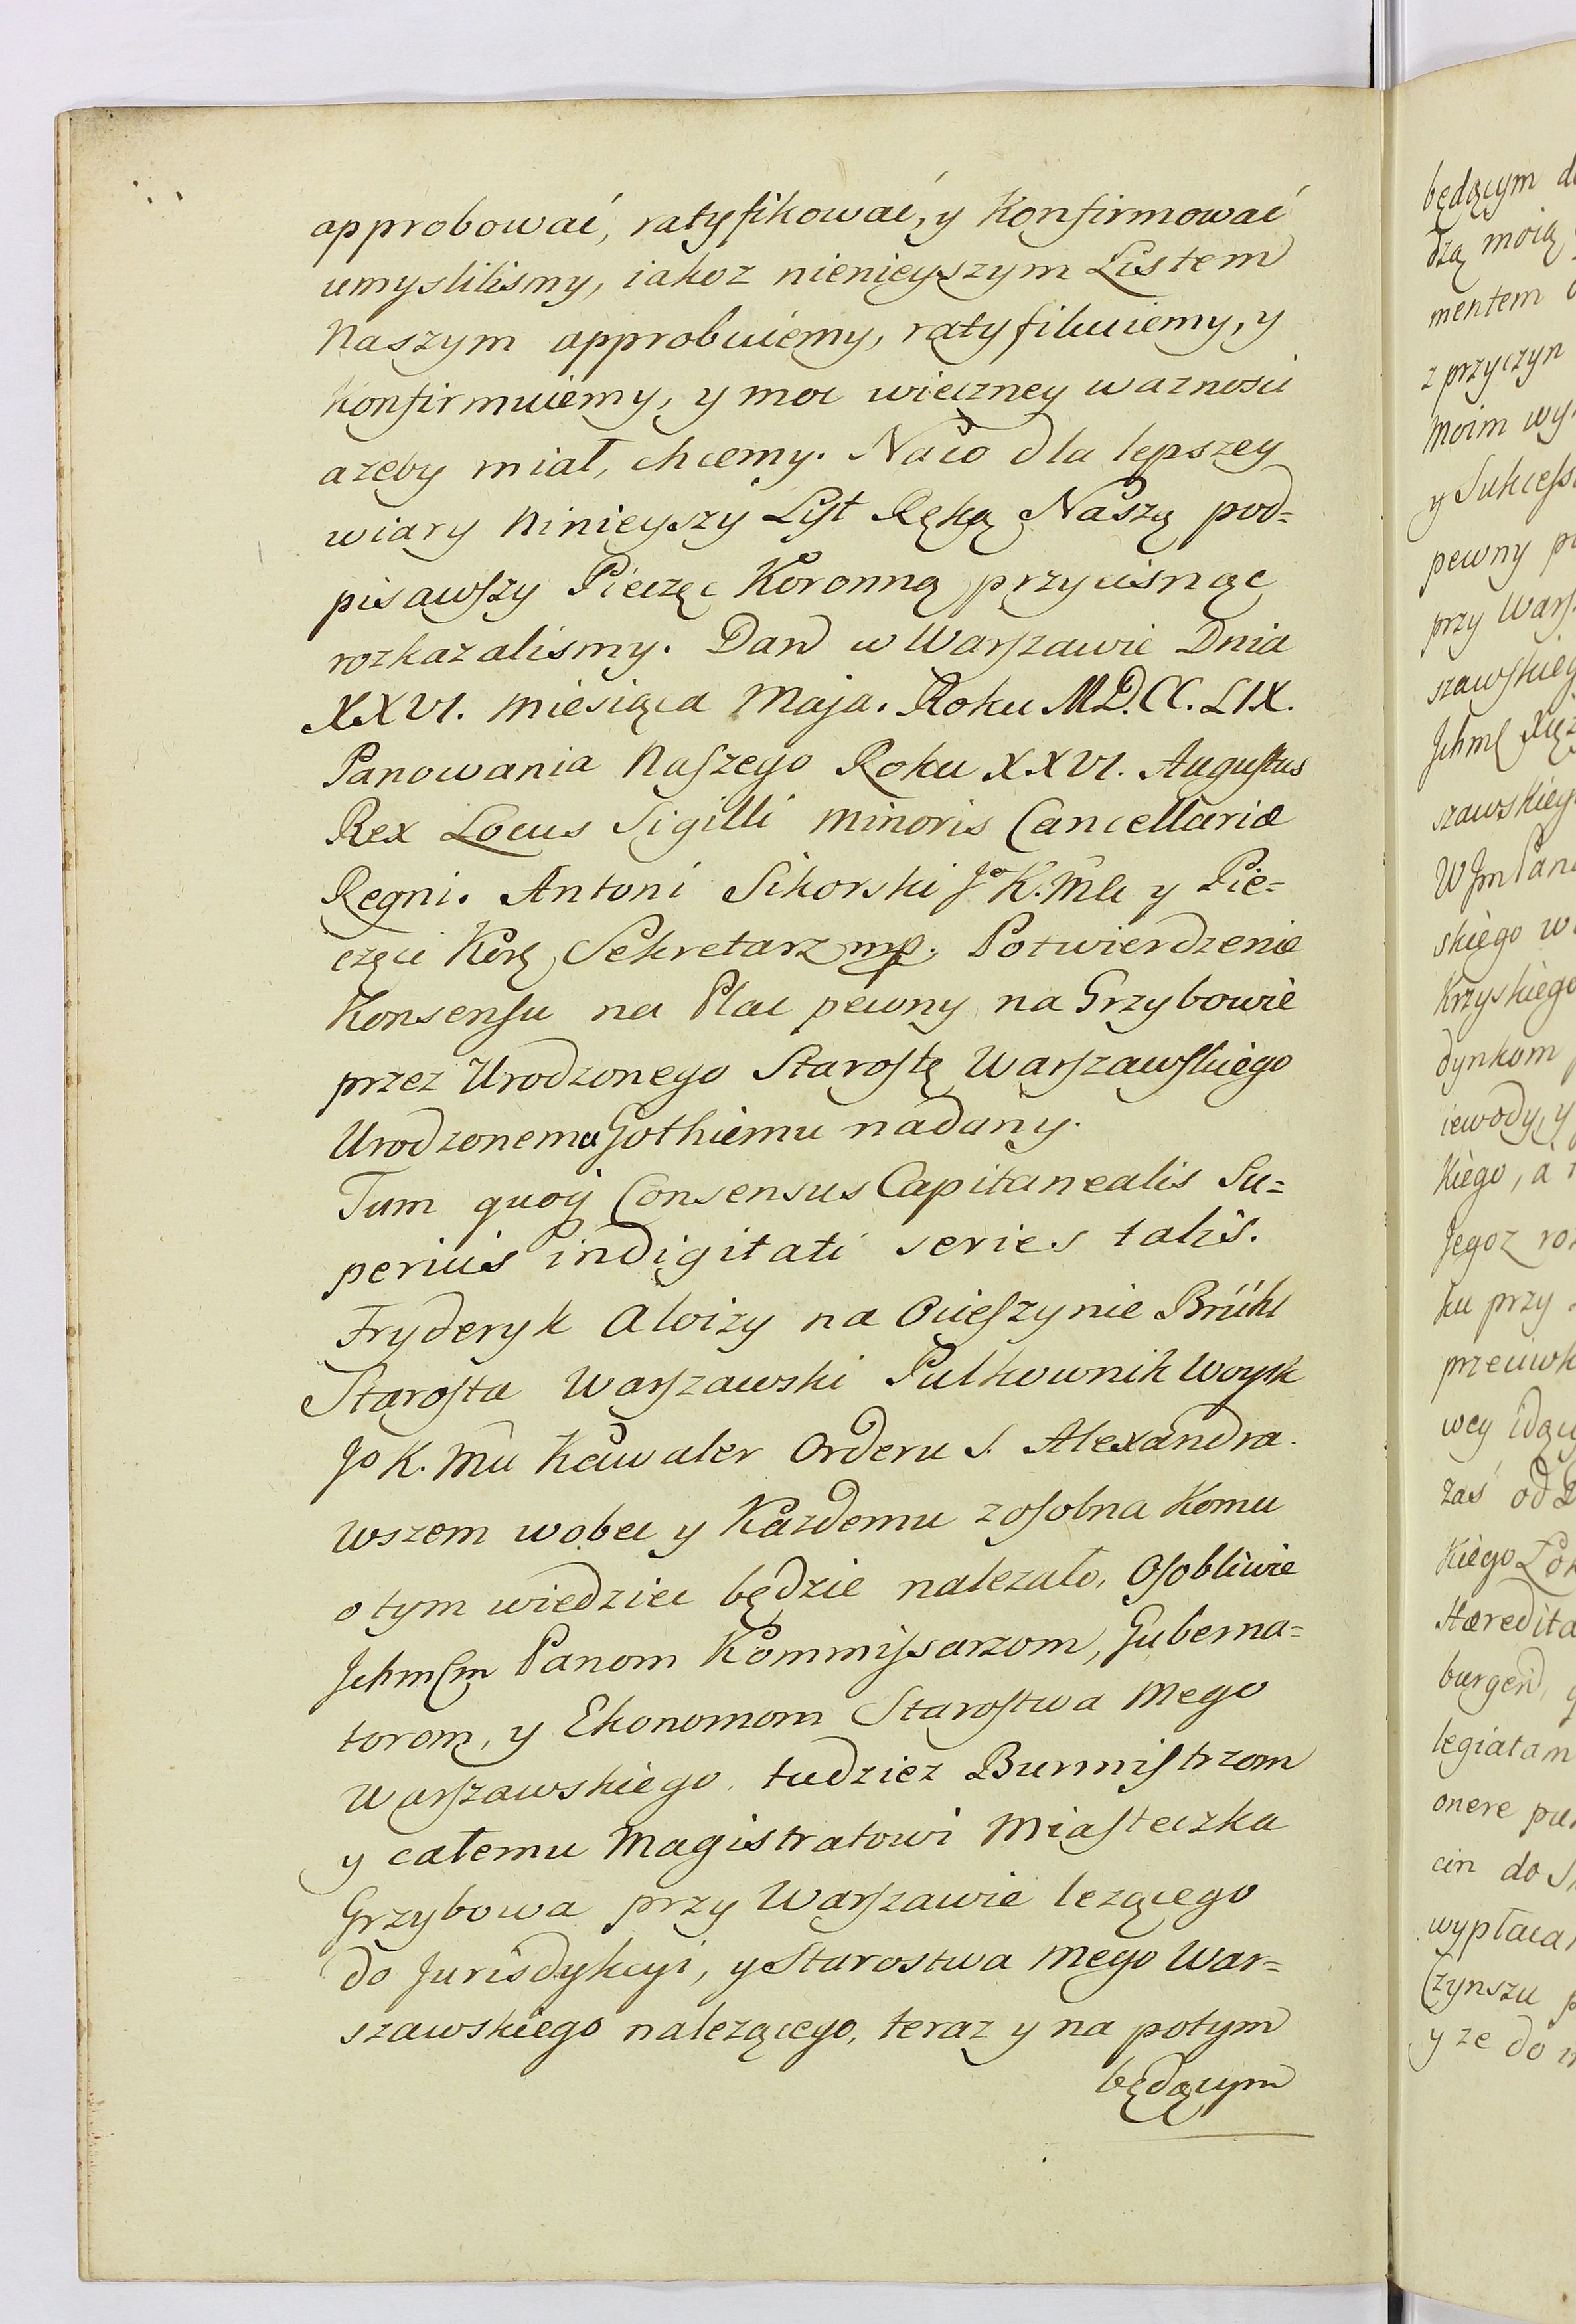 approbować, ratyfikować, y Konfirmować
umyslilismy, iakoz nienięyszym Listem
Naszym approbuiemy, ratyfikuiemy, y
Konfirmuiemy, y moc wieczney waznosci
azeby miał, chcemy. Naco dla lepszey
wiary Ninięyszy List Ręką Naszą pod=
pisawszy Pieczęc Koronną przycisnąc
rozkazalismy. Dan w Warszawie Dnia
XXVI. Miesiąca Maja. Roku MD.CC.LIX.
Panowania Naszego Roku XXVI. Augustus
Rex Locus Sigilli Minoris Cancellariæ
Regni. Antoni Sikorski Jo K. Mci y Pie=
częci Korę Sekretarz mp. Potwierdzenie
Konsensu na Plac pewny na Grzybowie
przez Urodzonego Starostę Warszawskiego
Urodzonemu Gothiemu nadany.
Tum quoq Consensus Capitanealis Su=
perius indigitati series talis.
Fryderyk Aloizy na Ocieszynie Brühl
Starosta Warszawski Pulkownik Woysk
Jo K. Mci Kawaler Orderu S. Alexandra.
Wszem wobec y Kazdemu zosobna Komu
otym wiedziec będzie nalezało, Osobliwie
Jchmcm Panom Kommissarzom, Guberna=
torom, y Ekonomom Starostwa Mego
Warszawskiego, tudziez Burmistrzom
y całemu Magistratowi Miasteczka
Grzybowa przy Warszawie lezącego
do Jurisdykcyi, y Starostwa Mego War=
szawskiego nalezącego, teraz y na potym
będącym
będącym
dzą moią
mentem
z przyczyn
Moim
y
pewny
przy
szawskieg
Jchmc
szawskieg
skiego
Krzyskiego
dynkom
iewody, y
Kiego, a
Jegoz
ku przy
przeciwk
wey
zas od
Kiego
Hæredita
burgen
legiatam
onere
cin do
wypłaca
Czynszu
y ze do